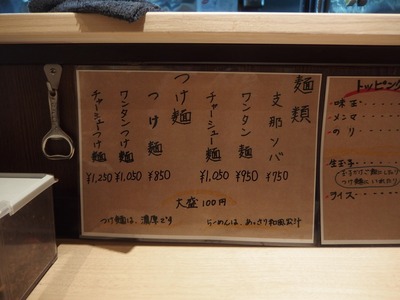 麺類
支那ソバ ¥750
ワンタン麺 ¥950
チャーシュー麺 ¥1,050
つけ麺
つけ麺 ¥850
ワンタンつけ麺 ¥1,050
チャーシューつけ麺 ¥1,250
大盛100円
つけ麺は、濃厚です
らーめんは、あっさり和風出汁
トッピング
味玉
メンマ
のり
生玉子
ライス